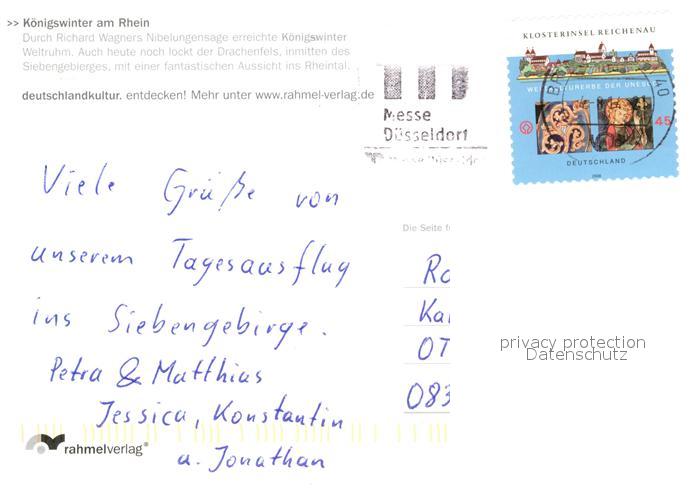 >> Königswinter am Rhein
Durch Richard Wagners Nibelungensage erreichte Königswinter
Weltruhm. Auch heute noch lockt der Drachenfels, inmitten des
Siebengebierges, mit einer fantastischen Aussicht ins Rheintal.
deutschlandkultur. entdecken! Mehr unter www.rahmel-verlag.de
Messe
Düsseldorf
KLOSTERINSEL REICHENAU
WELTKULTURERBE DER UNESCO
45
DEUTSCHLAND
Viele Grüße von
unserem Tagesausflug
ins Siebengebirge.
Petra & Matthias
Jessica, Konstantin
u. Jonathan
Die Seite f
Ro
Kai
OT
083
privacy protection
Datenschutz
rahmelverlag®